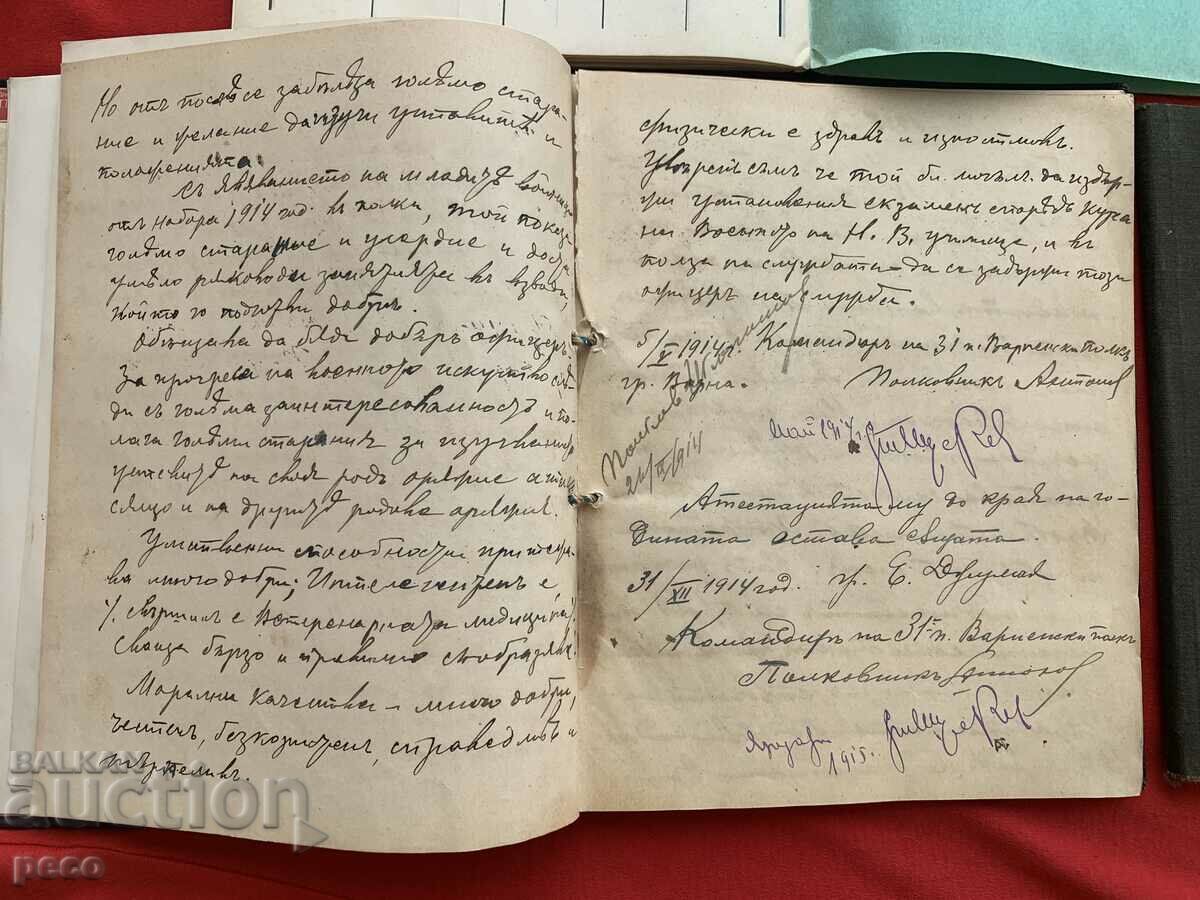 Но отъ послѣ се забѣлѣза голѣмо стара-
ние и желание да изучи уставитѣ и
положенията.
Съ явяванието на младитѣ войници
отъ набора 1914 год. въ полка, той показа
голѣмо старание и усърдие и доста
умѣло рѫководи занятията въ взвода,
който го подготви добрѣ.
Обѣщава да бѫде добъръ офицеръ.
За прогреса на военното искуство слѣ-
ди съ голѣма заинтересованность и по-
лага голѣми старания за изучвание
уставитѣ на своя родъ орѫжие а тъй
сѫщо и на другитѣ родове орѫжия.
Умственни способности притежа-
ва много добри; Интелегентенъ е
/. свършилъ е Ветеринарната медицина/.
Схваща бързо и правилно съобразява.
Морални качества – много добри,
честенъ, безкористенъ, справедливъ и
търпеливъ.
физически е здравъ и издръжливъ.
Увѣренъ съмъ че той би могълъ да издър-
жи установения екзаменъ споредъ курса
на Военното на Н. В. училище, и въ
полза на службата – да се задържи този
офицеръ на служба.
5/V 1914 г. Командиръ на 31 п. Варненски полкъ
гр. Варна. Полковникъ Антонов
24/IX 1914
Май 1914 г.
Атестацията му до края на го-
дината остава сѫщата.
31/XII 1914 год. гр. Е. Джумая
Командиръ на 31-п. Варненски полкъ
Полковникъ Антонов
Януари
1915.
BALKAN
auction
peco